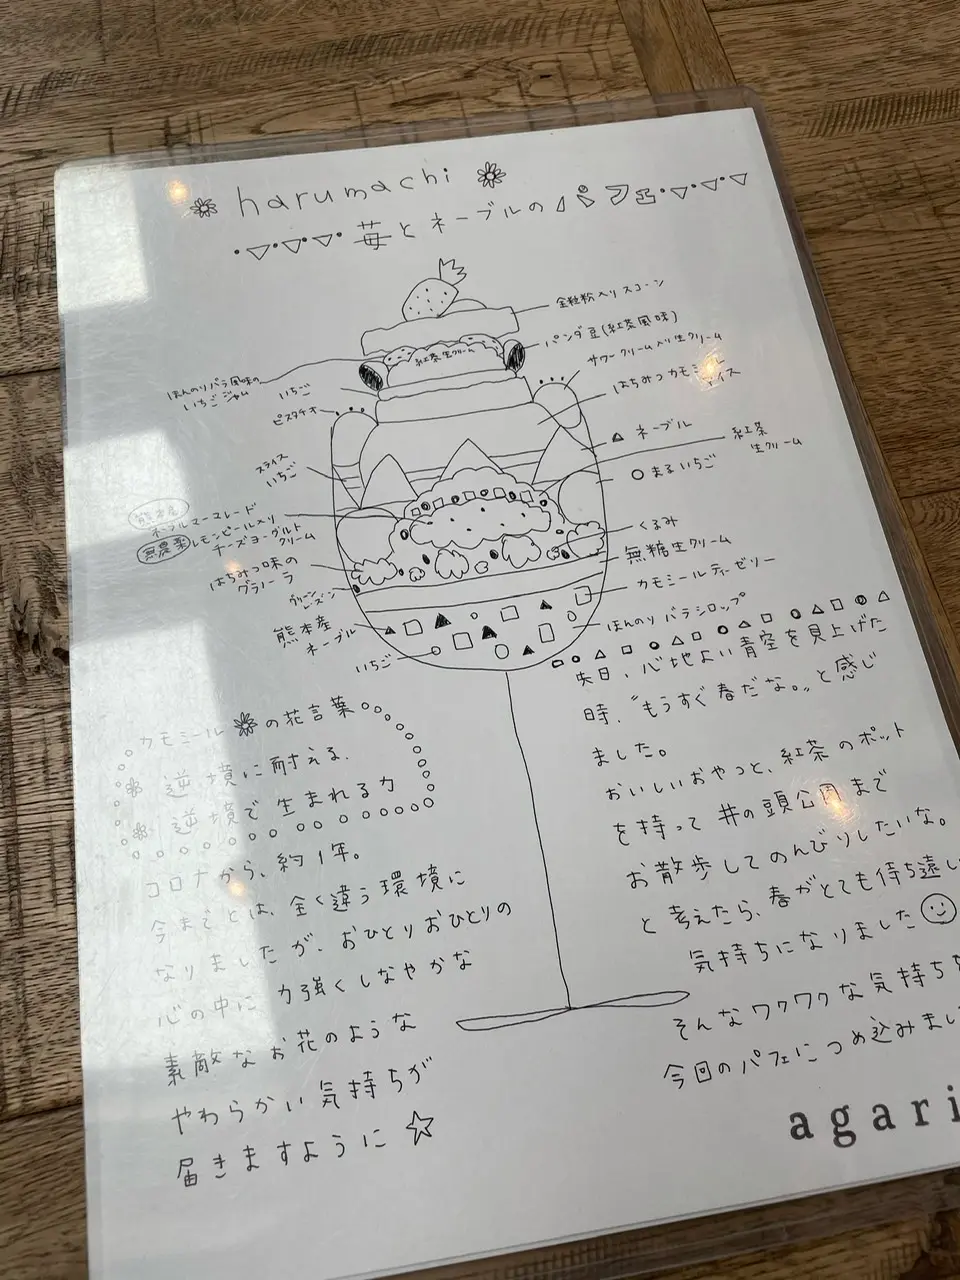 harumachi
苺とネーブルのパフェ
全粒粉入りスコーン
パンダ豆(紅茶風味)
紅茶生クリーム
サワークリーム入り生クリーム
ほんのりバラ風味の
いちごジャム
いちご
はちみつカモミール
アイス
ピスタチオ
ネーブル
紅茶
生クリーム
スライス
いちご
まるいちご
熊本産
ネーブルマーマレード
無農薬レモンピール入り
チーズヨーグルト
クリーム
くるみ
無糖生クリーム
はちみつ味の
グラノーラ
カモミールティーゼリー
グリーン
レーズン
熊本産
ネーブル
ほんのりバラシロップ
いちご
カモミールの花言葉
逆境に耐える、
逆境で生まれる力
コロナから、約1年。
今までとは、全く違う環境に
なりましたが、おひとりおひとりの
心の中に力強くしなやかな
素敵なお花のような
やわらかい気持ちが
届きますように☆
先日、心地よい青空を見上げた
時、〝もうすぐ春だな。〟と感じ
ました。
おいしいおやつと、紅茶のポット
を持って井の頭公園まで
お散歩してのんびりしたいな。
と考えたら、春がとても待ち遠し
気持ちになりました
そんなワクワクな気持ちを
今回のパフェにつめ込みまし
agari